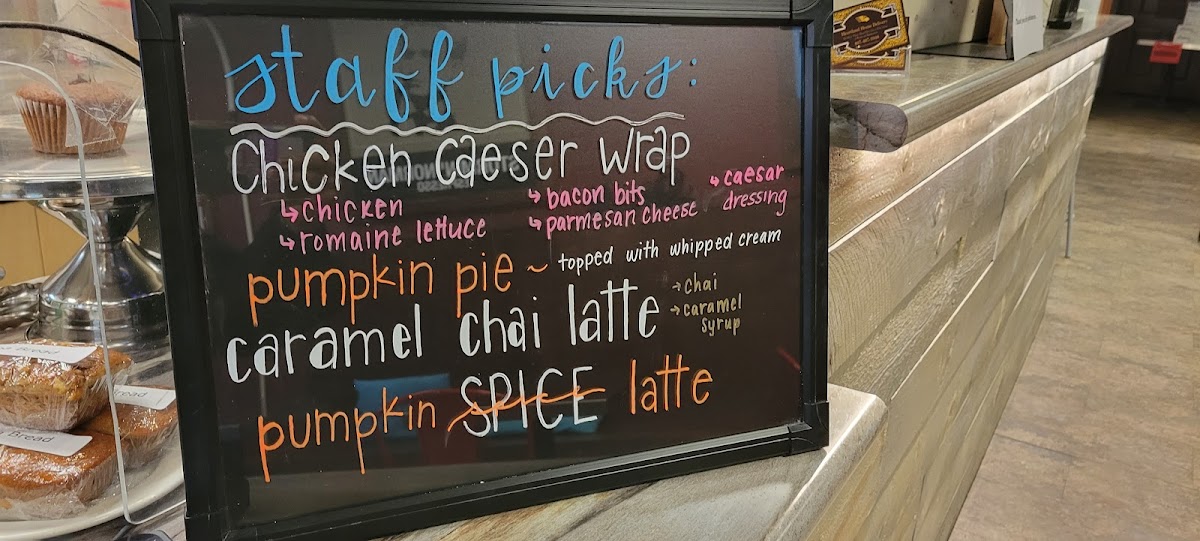 staff picks:
Chicken Caeser Wrap
↳ chicken
↳ romaine lettuce
↳ bacon bits
↳ parmesan cheese
↳ caesar dressing
pumpkin pie ~ topped with whipped cream
caramel chai latte
→ chai
→ caramel syrup
pumpkin SPICE latte
Bread
Bread
Bread